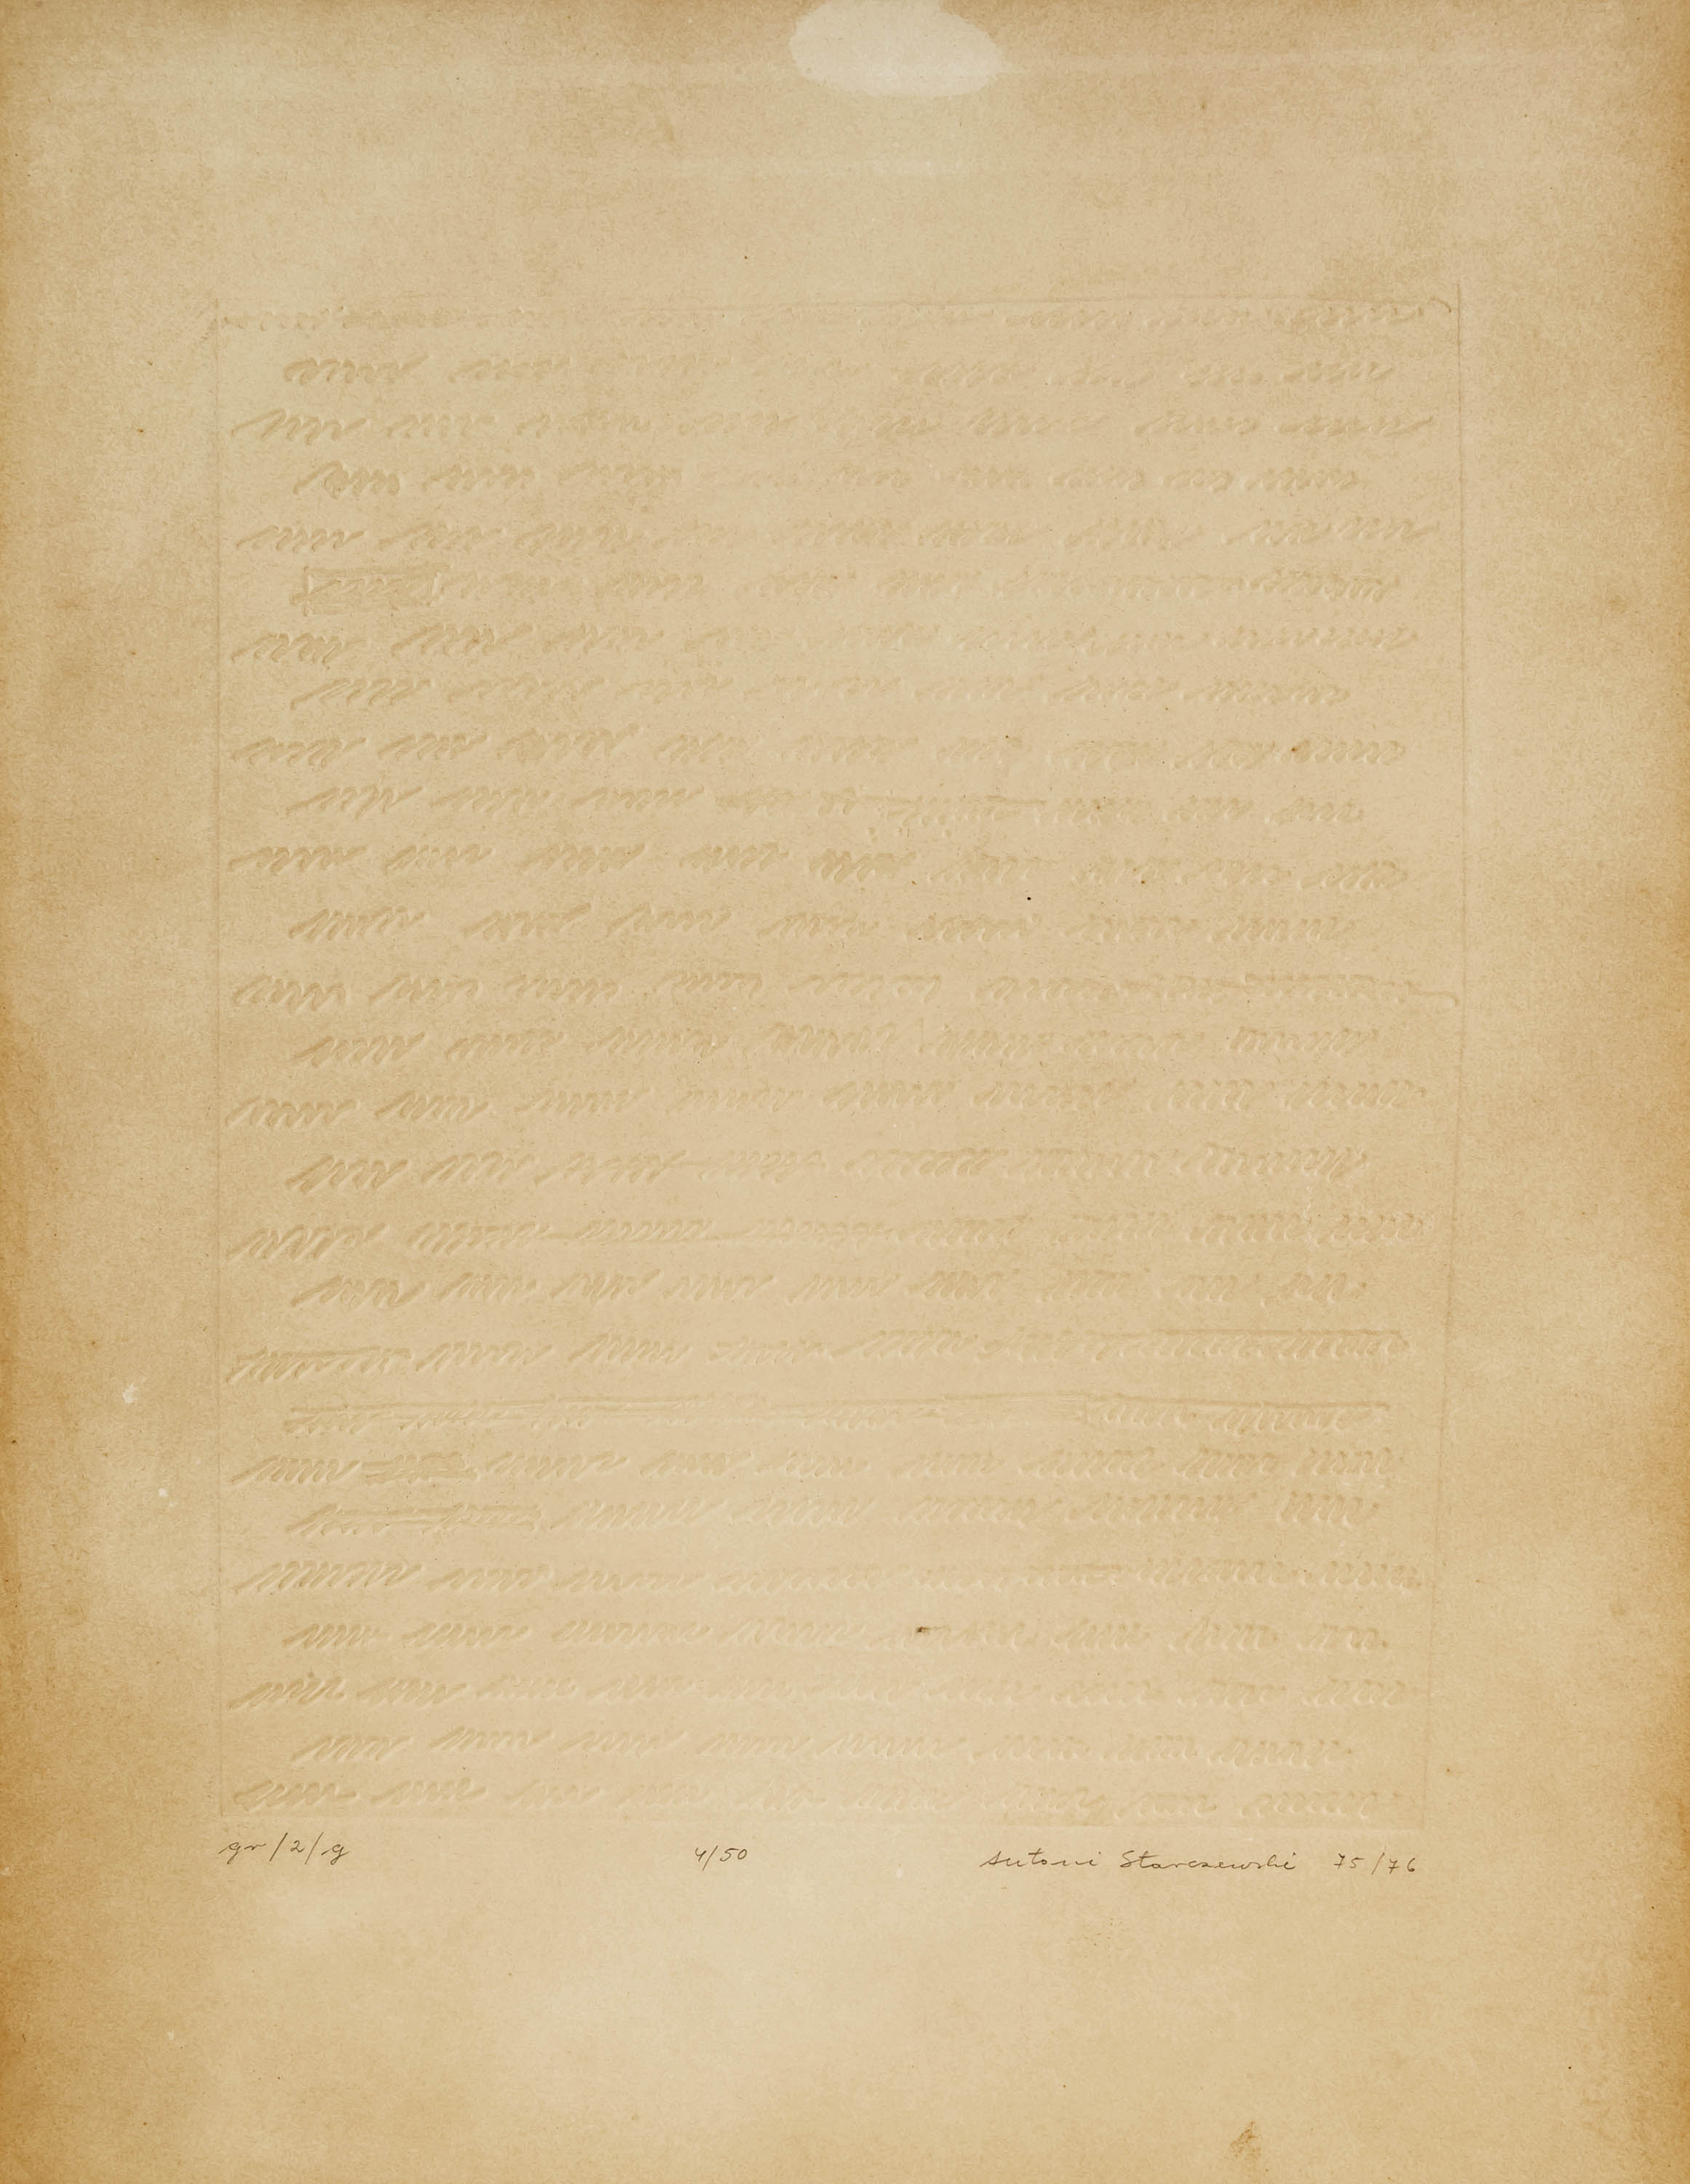 gr/2/g 4/50 Antoni Starczewski 75/76